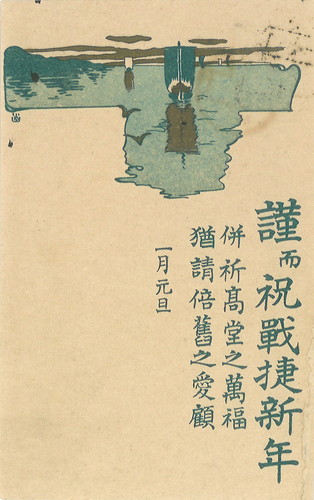 謹而祝戰捷新年
併祈髙堂之萬福
猶請倍舊之愛顧
一月元旦